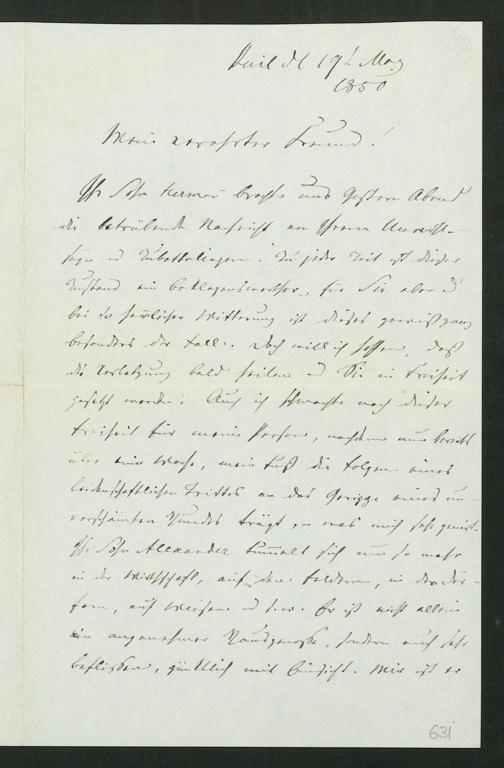 d 19t May
1850
Mein verehrter Freund!
Ihr Sohn Herman brachte uns gestern Abend
die betrübende Nachricht von Ihrem Unwohl-
sein u Zubettliegen. Zu jeder Zeit ist dieser
Zustand ein beklagenswerther, für Sie aber u
bei so herrlicher Witterung ist dieses gewiß ganz
besonders der Fall. Doch will ich hoffen, daß
die Verletzung bald heilen u Sie in Freiheit
gesetzt werden. Auch ich schmachte nach dieser
Freiheit für meine Person, nachdem nun bereits
über eine Woche, mein Fuß die Folgen eines
leidenschaftlichen Trittes an das Gerippe eines un-
verschämten Hundes trägt, was mich sehr genirt.
Ihr Sohn Alexander tummelt sich um so mehr
in der Wirthschaft, auf den Feldern, in
auf Wiesen u s.w. Er ist nicht allein
ein angenehmer Hausgenosse, sondern auch sehr
beflissen, mit Einsicht. Mir ist er
631